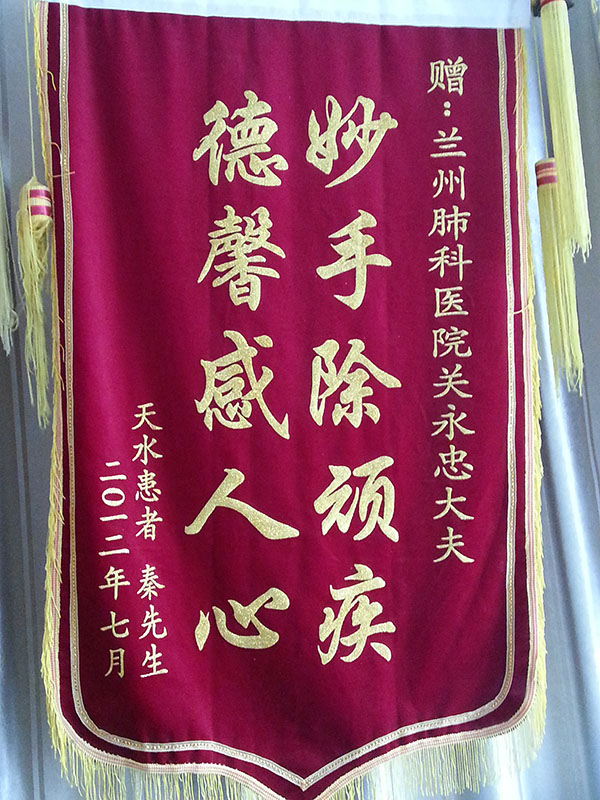 赠:兰州肺科医院关永忠大夫
妙手除顽疾
德馨感人心
天水患者 秦先生
二〇一二年七月